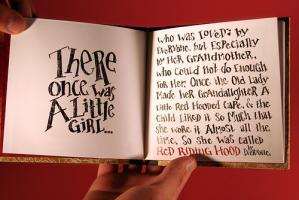 There
once was
A Little
GiRL...
who was Loved by
Everyone, but Especially
by Her GRANDMOTHER,
who could not do Enough
for Her. Once the Old Lady
Made her Grandaughter A
Little Red Hooded Cape, & the
child Liked it So Much that
she wore it Almost all the
time, So she was called
RED RIDING HOOD by Everyone.